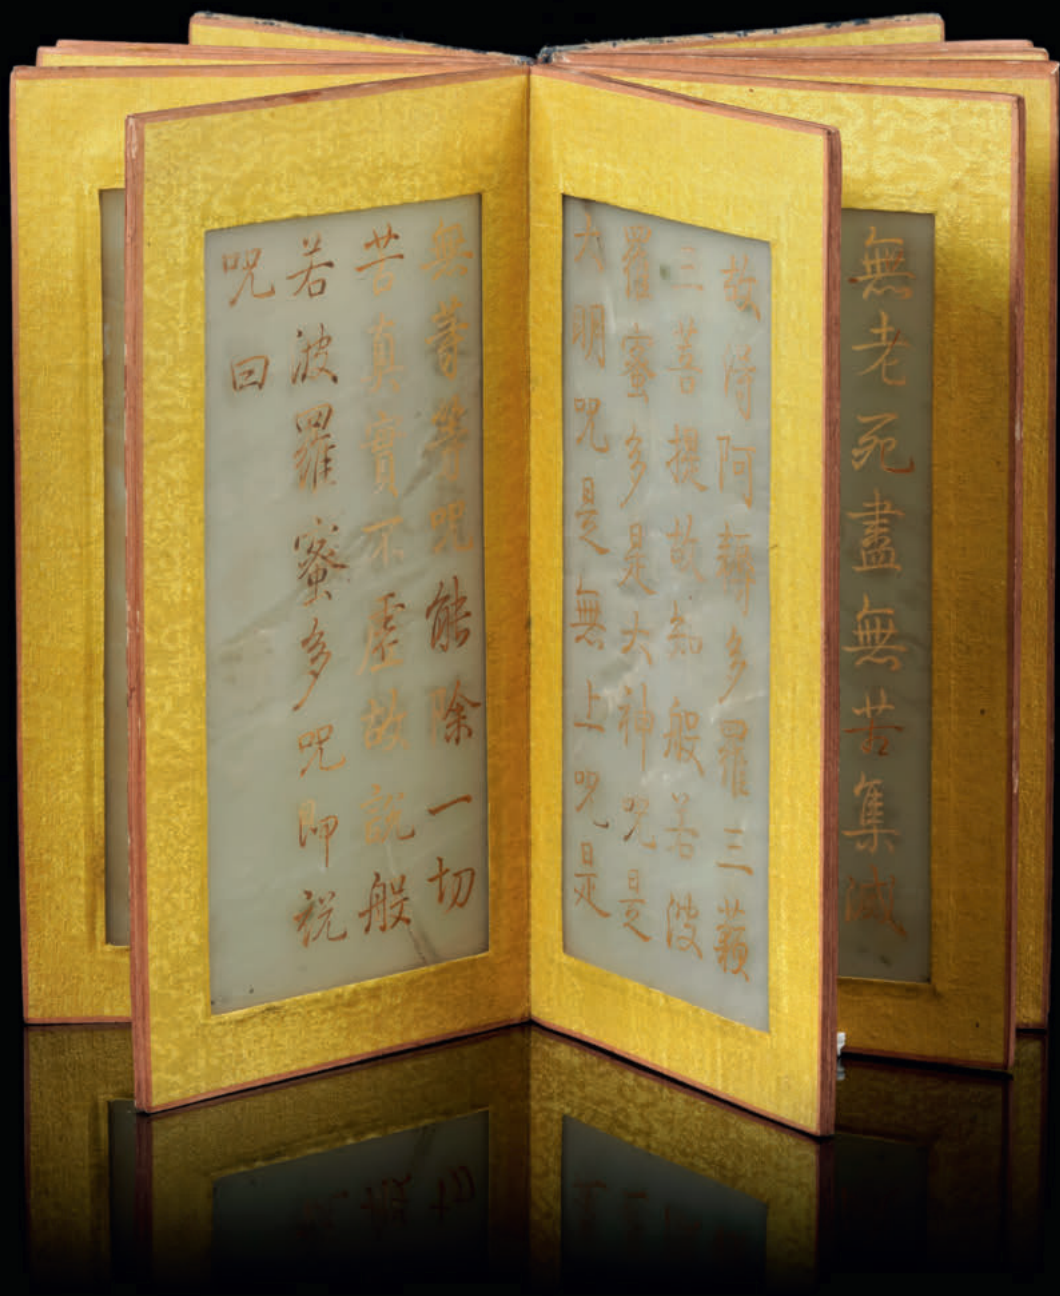 無老死盡無苦集滅
故得阿耨多羅三藐
三菩提故知般若波
羅蜜多是大神呪是
大明呪是無上呪是
無等等呪能除一切
苦真實不虛故說般
若波羅蜜多呪即說
呪曰